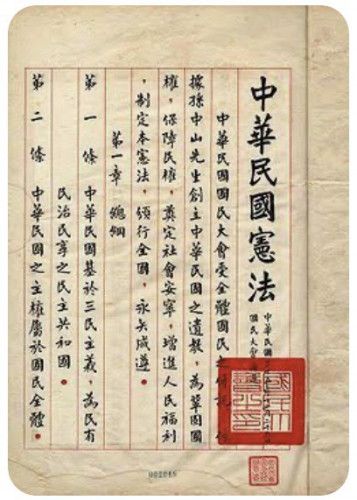 中華民國憲法
中華民國三十五年十二月二十五日
國民大會通過
中華民國國民大會受全體國民之付託，依
據孫中山先生創立中華民國之遺教，為鞏固國
權，保障民權，奠定社會安寧，增進人民福利
，制定本憲法，頒行全國，永矢咸遵。
第一章 總綱
第一條 中華民國基於三民主義，為民有
民治民享之民主共和國。
第二條 中華民國之主權屬於國民全體。